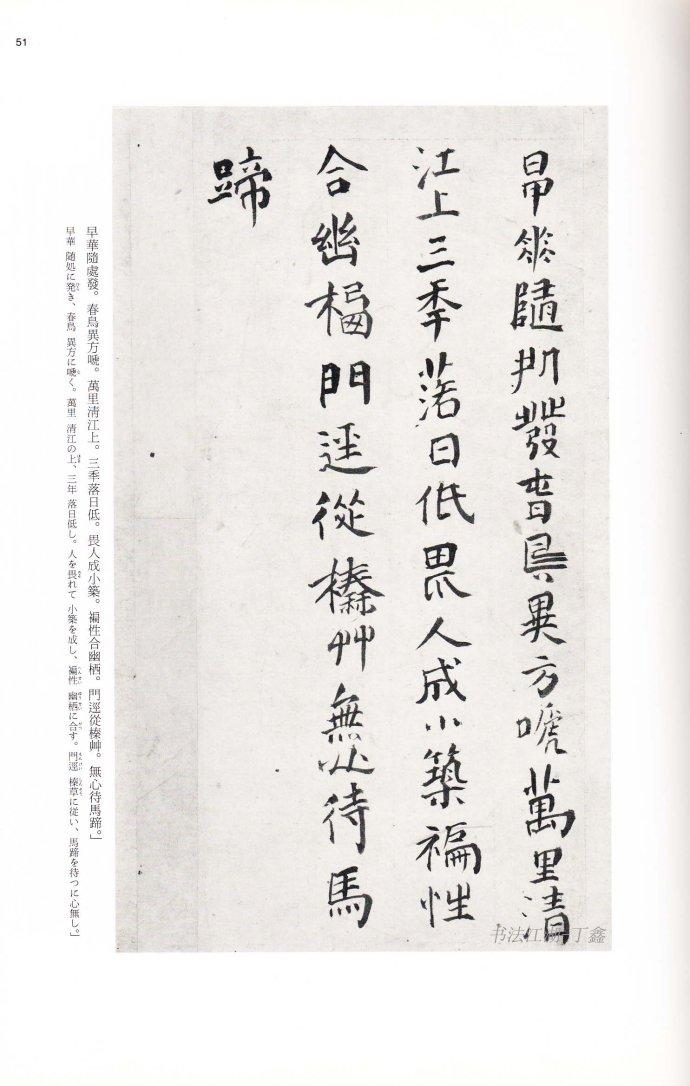 51
早華隨處發春鳥異方嗁萬里清
江上三季落日低畏人成小築褊性
合幽栖門逕從榛艸無心待馬
蹄
早華隨處發。春鳥異方嗁。萬里清江上。三季落日低。畏人成小築。褊性合幽栖。門逕從榛艸。無心待馬蹄。」
早華 随処に発き、春鳥 異方に嗁く。萬里 清江の上、三年 落日低し。人を畏れて 小築を成し、褊性 幽栖に合す。門逕 榛草に従い、馬蹄を待つに心無し。」
书法江湖 丁鑫